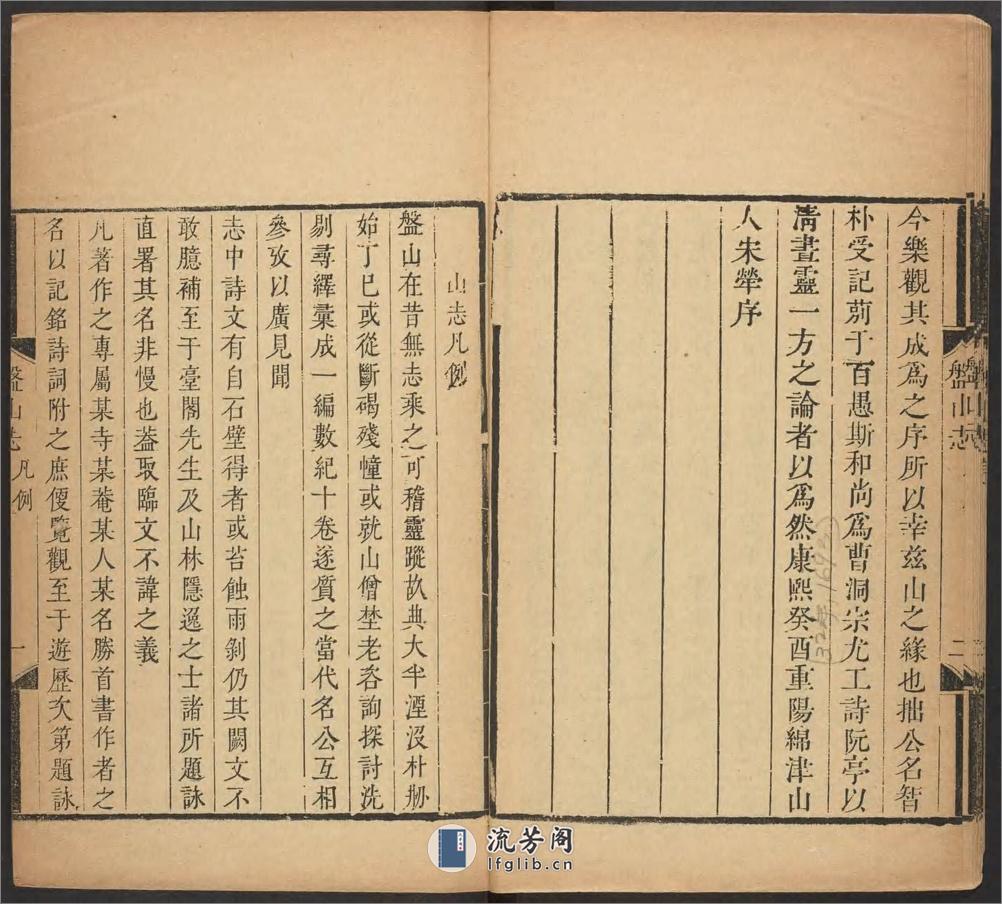 今樂觀其成爲之序所以幸兹山之緣也拙公名智
朴受記莂于百愚斯和尚爲曹洞宗尤工詩阮亭以
淸晝靈一方之論者以爲然康熙癸酉重陽綿津山
人宋犖序
盤山志
二
山志凡例
盤山在昔無志乘之可稽靈蹤故典大半湮沒朴剏
始丁巳或從斷碣殘幢或就山僧埜老咨詢探討洗
剔尋繹彙成一編數紀十卷遂質之當代名公互相
參攷以廣見聞
志中詩文有自石壁得者或苔蝕雨剝仍其闕文不
敢臆補至于臺閣先生及山林隱逸之士諸所題詠
直署其名非慢也葢取臨文不諱之義
凡著作之專屬某寺某菴某人某名勝首書作者之
名以記銘詩詞附之庶便覽觀至于遊歷次第題詠
盤山志 凡例
一
流芳阁
lfglib.cn